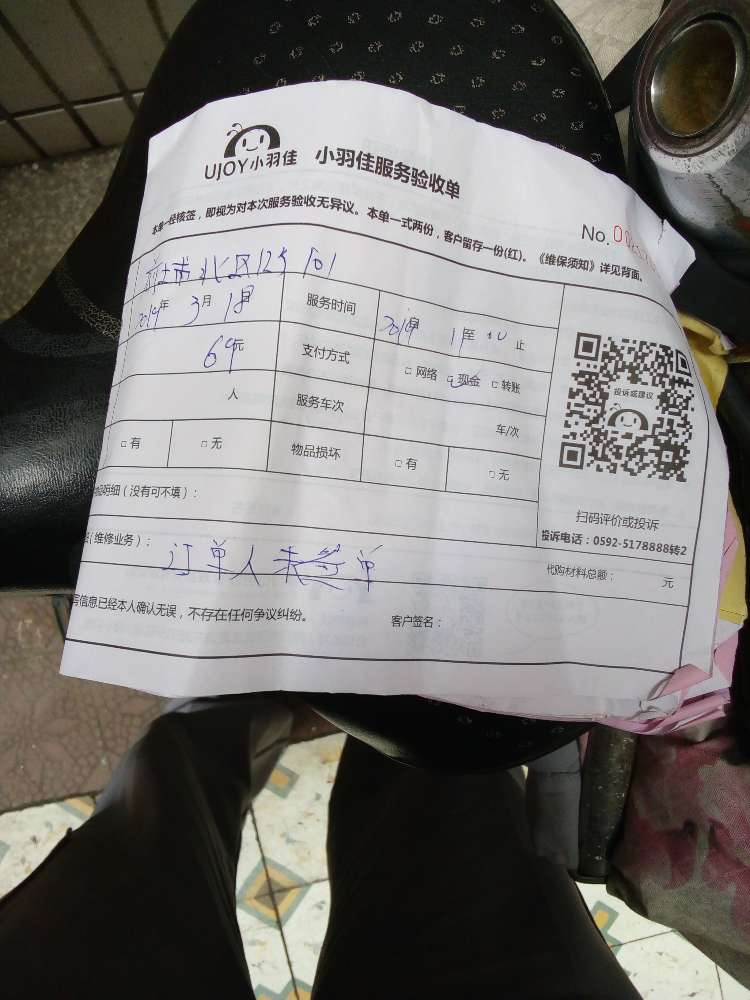 UJOY小羽佳 小羽佳服务验收单
本单一经核签，即视为对本次服务验收无异议。本单一式两份，客户留存一份(红)。《维保须知》详见背面。
No.
北区125 101
2019年 3月 1日 服务时间 2019 至 止
69元 支付方式 □ 网络 □ 现金 □ 转账
人 服务车次 车/次
□ 有 □ 无 物品损坏 □ 有 □ 无
投诉或建议
扫码评价或投诉
投诉电话：0592-5178888转2
明细（没有可不填）：
（维修业务）： 订单人未签单
代购材料总额： 元
信息已经本人确认无误，不存在任何争议纠纷。 客户签名：